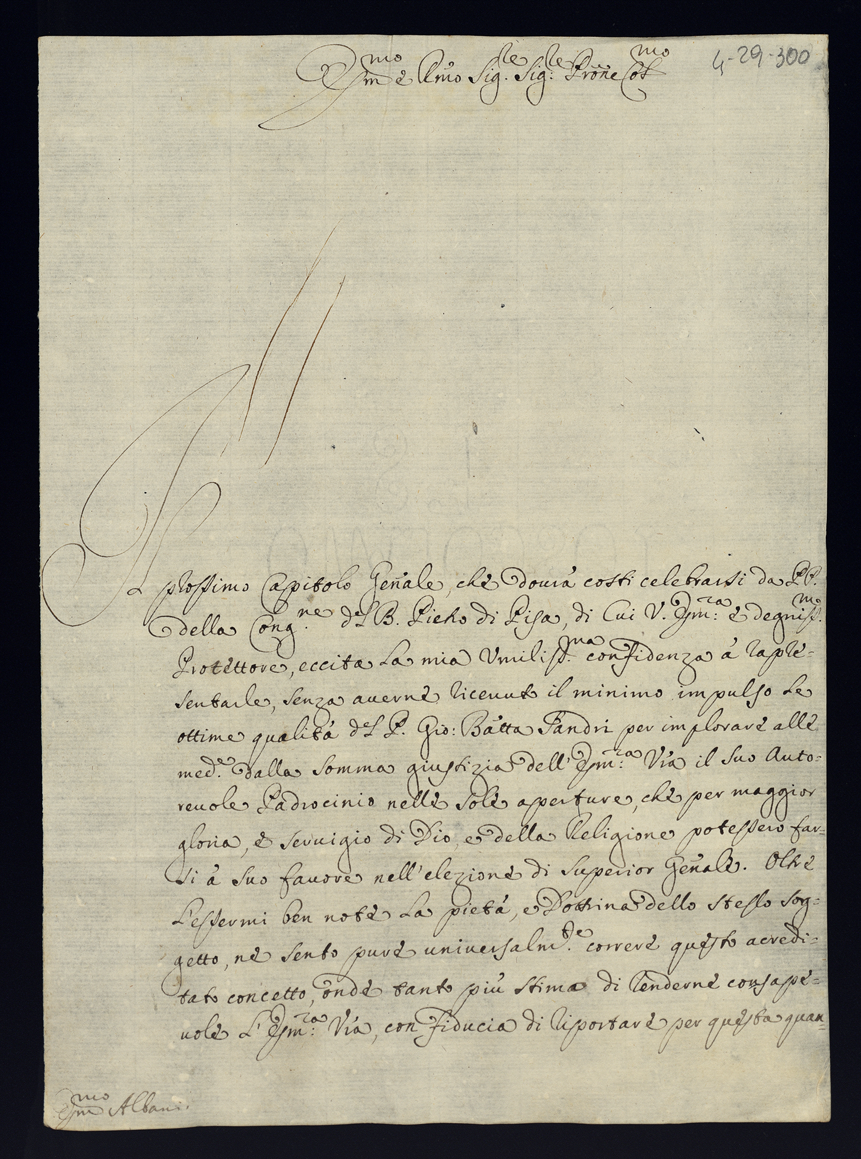 Em.mo e Rmo Sig.re Sig.re Prone Col.mo
4-29-300
Il prossimo Capitolo Gen̄ale, che dourà costì celebrarsi da PP.
della Cong.ne del B. Pietro di Pisa, di Cui V. Em.ra è degniss.mo
Protettore, eccita La mia Vmiliss.ma confidenza à rapre=
sentarle, senza auerne riceuut il minimo impulso Le
ottime qualità del P. Gio: Bat̄ta Fandri per implorare alle
med.e dalla somma giustizia dell'Em.ra V̄ra il suo Auto=
reuole Padrocinio nelle sole aperture, che per maggior
gloria, e seruigio di Dio, e della Religione potessero far=
si à suo fauore nell'elezione di Superior Gen̄ale. Oltre
L'essermi ben note La pietà, e Dottrina dello stesso sog=
getto, ne sento pure uniuersalm.te correre questo acredi=
tato concetto, onde tanto più stimo di renderne consape=
uole L'Em.ra V̄ra, con fiducia di riportare per questa quan=
Em.mo Albani.